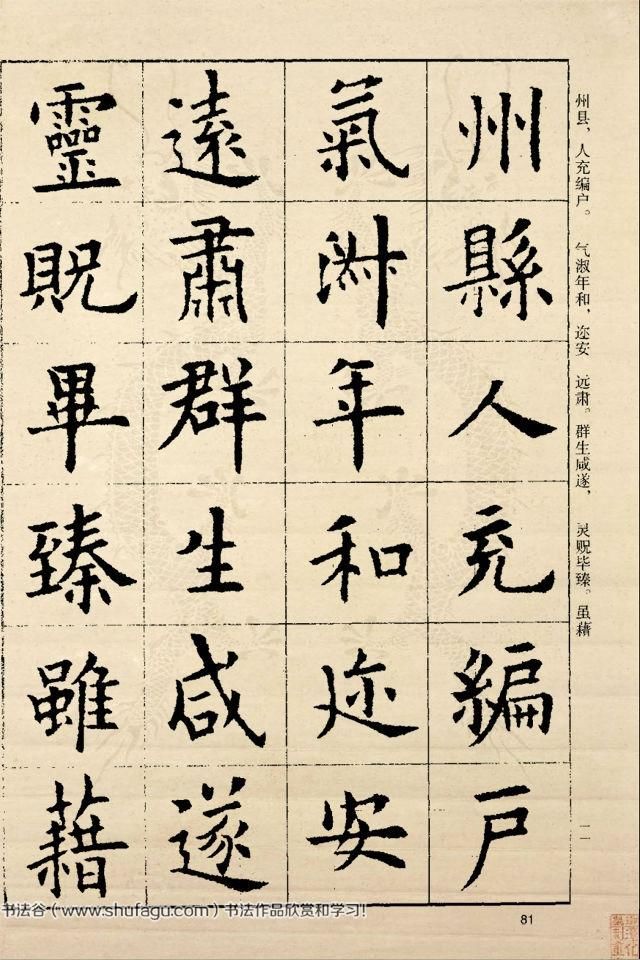 州縣人充編戶
氣淑年和迩安
遠肅群生咸遂
靈貺畢臻雖藉
州县、人充编户。 气淑年和，迩安 远肃。群生咸遂， 灵贶毕臻。虽藉
一一
81
书法谷（www.shufagu.com）书法作品欣赏和学习!